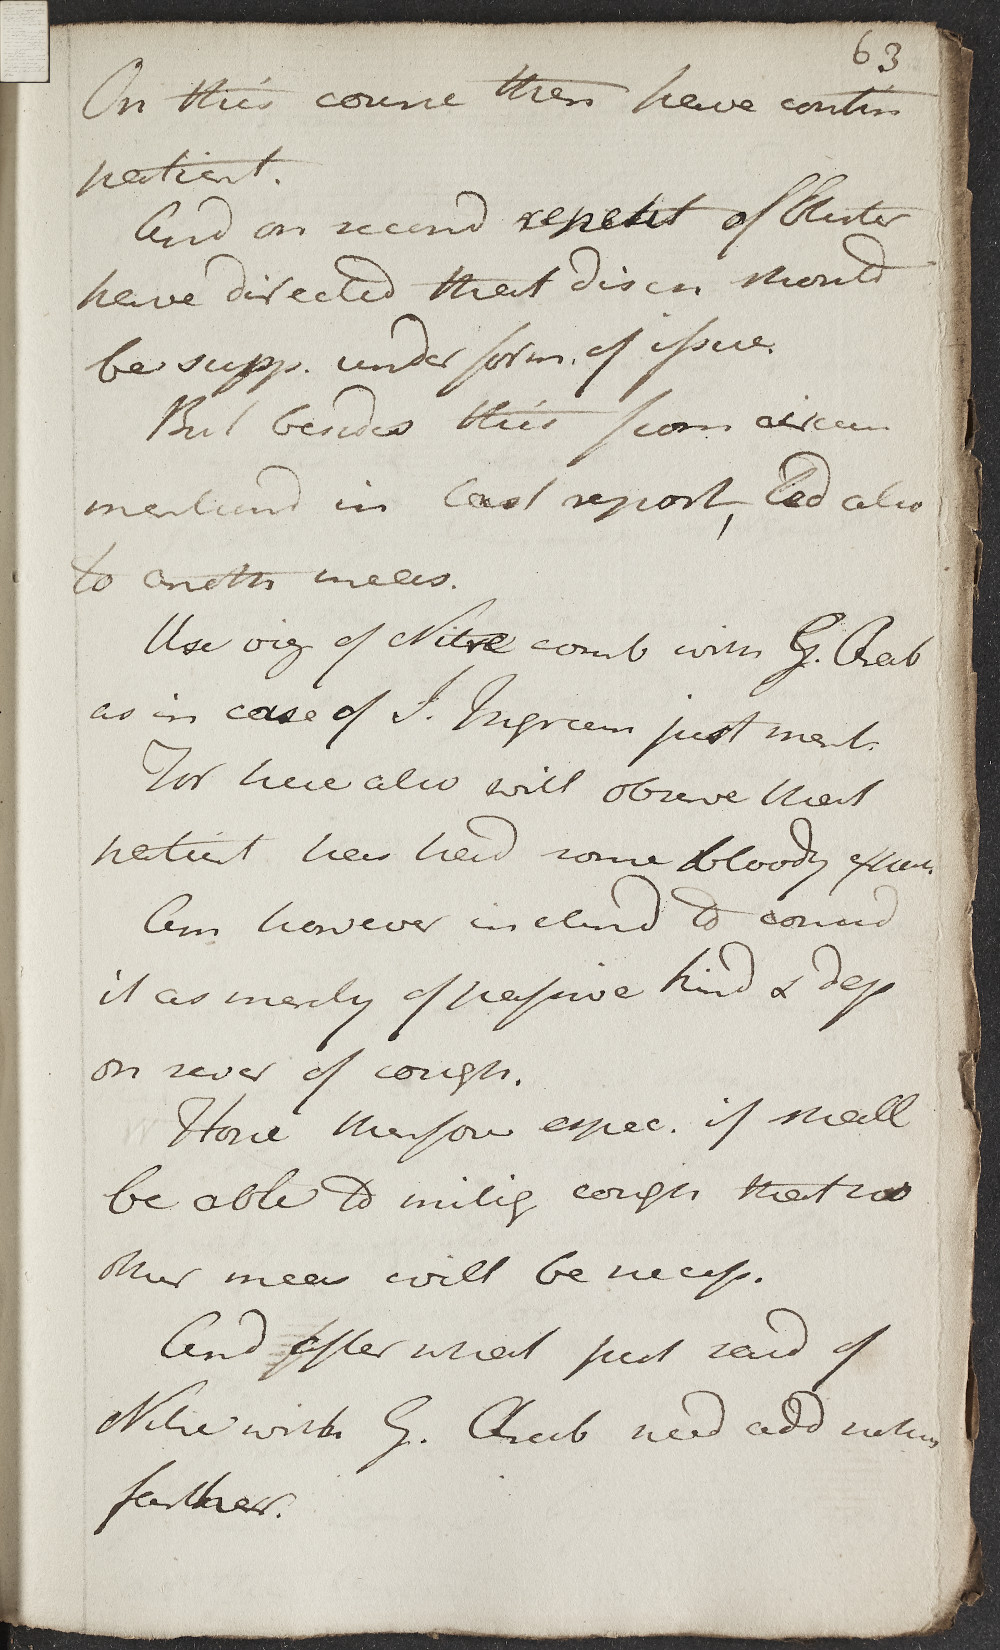 63
On this course then have contin
patient.
And on second repetit of Blister
have directed that disch should
be supp. under form. of issue.
But besides this from circum
mentiond in last report, led also
to anoth meas.
Use viz of Nitre comb with G. Arab
as in case of J. Ingram just ment.
For here also will observe that
patient has had some bloody expect.
Am however inclind to consid
it as merely of passive kind & dep
on sever of cough.
Hope therfore espec. if shall
be able to mitig cough that no
other meas will be necess.
And after what just said of
Nitre with G. Arab need add nothing
farther.